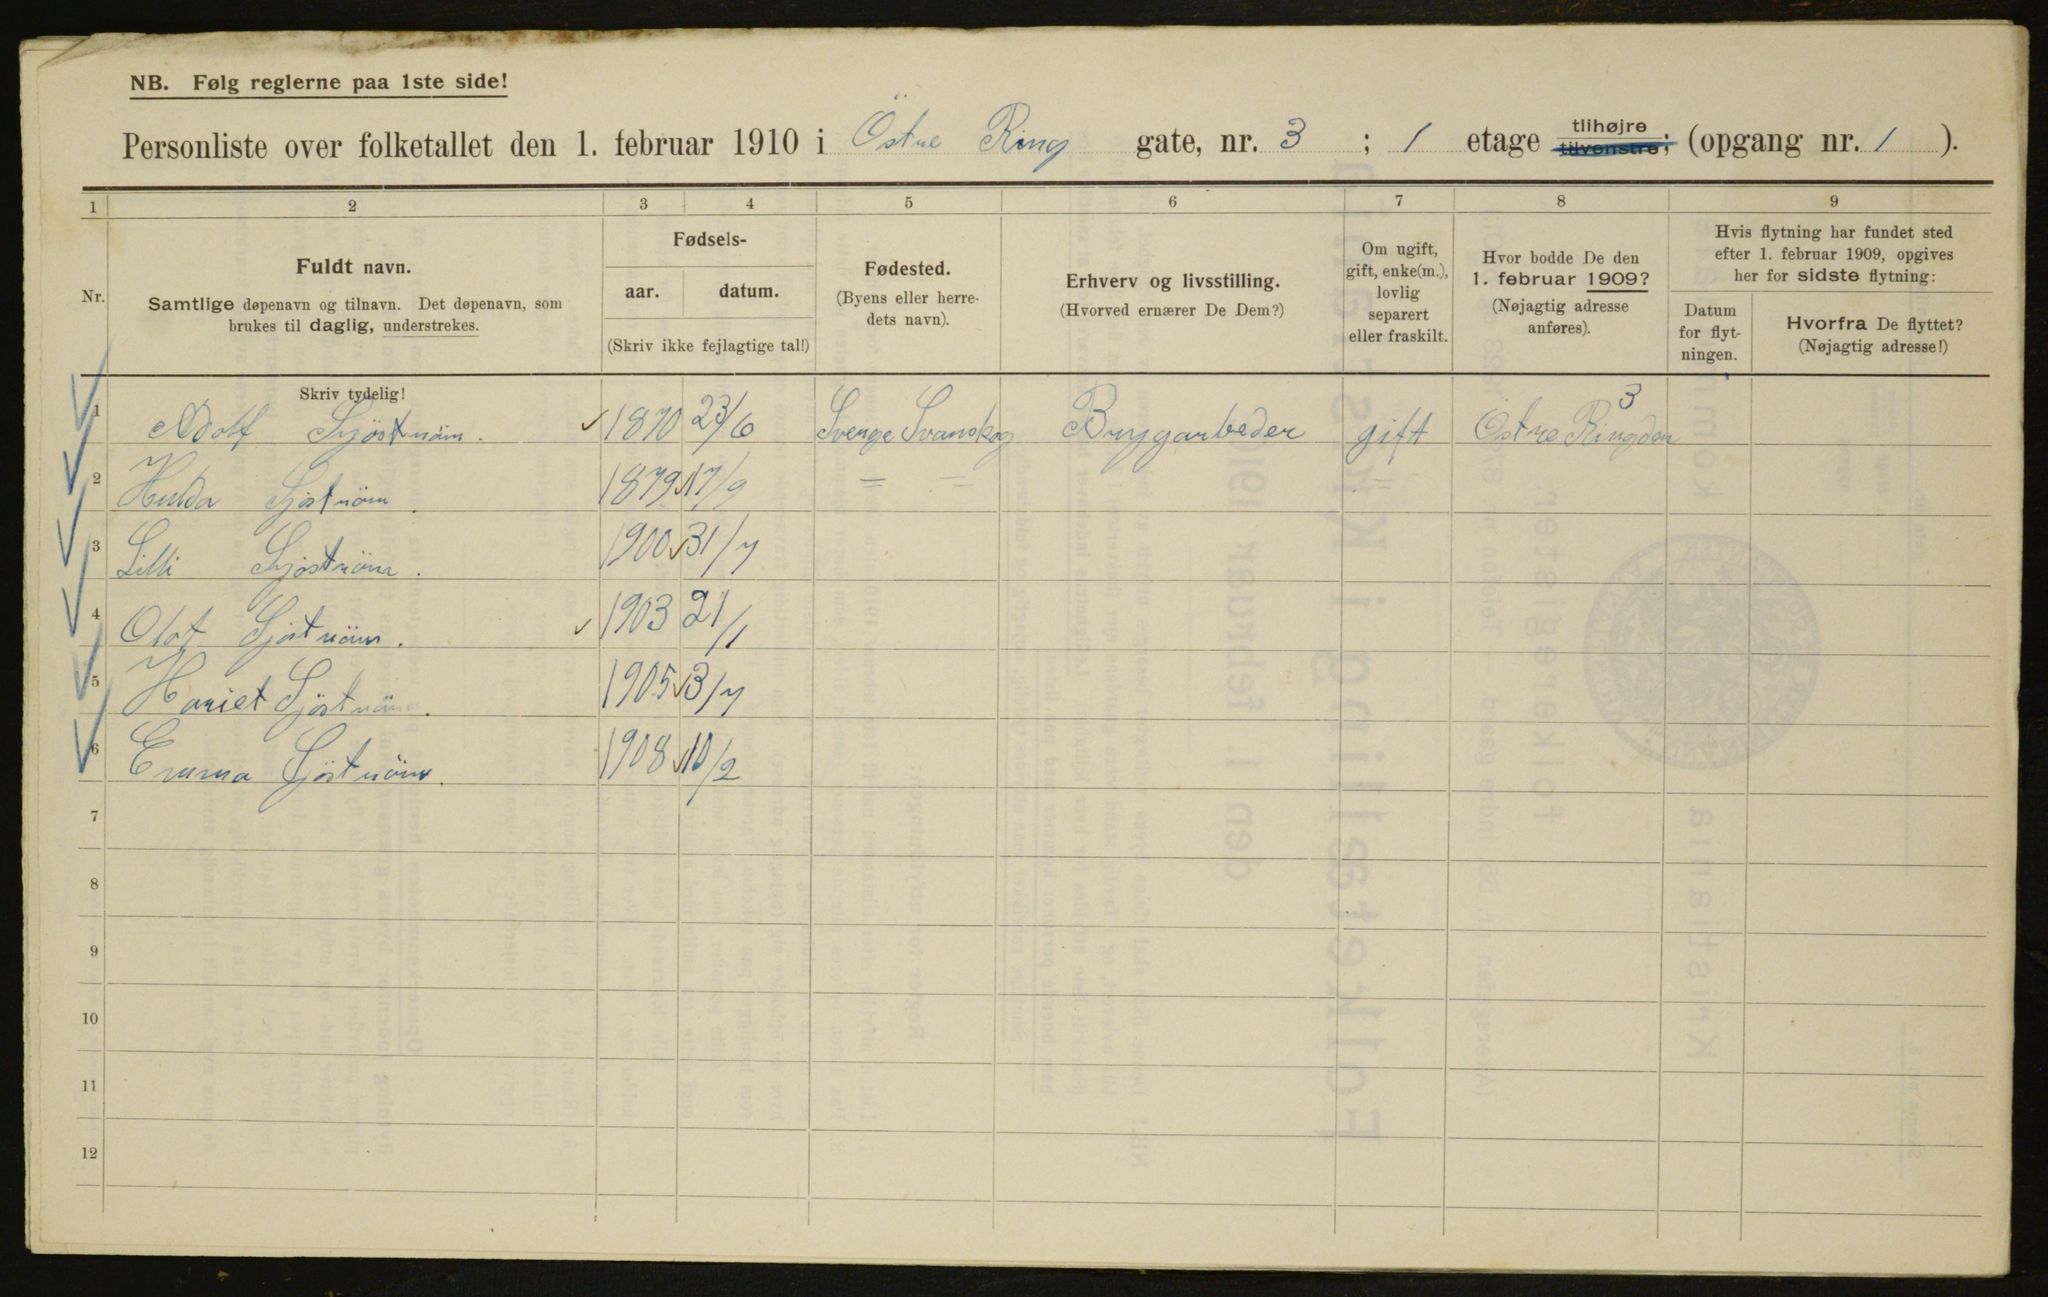 NB. Følg reglerne paa 1ste side!
Personliste over folketallet den 1. februar 1910 i Östre Ring gate, nr. 3 ; 1 etage tilhøjre tilvenstre; (opgang nr. 1 ).
1 2 3 4 5 6 7 8 9
Nr.
Fuldt navn.
Samtlige døpenavn og tilnavn. Det døpenavn, som
brukes til daglig, understrekes.
Fødsels-
aar. datum.
(Skriv ikke fejlagtige tal!)
Fødested.
(Byens eller herre-
dets navn).
Erhverv og livsstilling.
(Hvorved ernærer De Dem?)
Om ugift,
gift, enke(m.),
lovlig
separert
eller fraskilt.
Hvor bodde De den
1. februar 1909?
(Nøjagtig adresse
anføres).
Hvis flytning har fundet sted
efter 1. februar 1909, opgives
her for sidste flytning:
Datum
for flyt-
ningen.
Hvorfra De flyttet?
(Nøjagtig adresse!)
Skriv tydelig!
1 Adolf Sjöström. 1870 23/6 Sverge Svanskog Brygarbeder gift Östre Ringden 3
2 Hulda Sjöström. 1879 17/9 = = =
3 Lilli Sjöström. 1900 31/7
4 Olof Sjöström. 1903 21/1
5 Hariet Sjöström. 1905 3/7
6 Emma Sjöström. 1908 10/2
7
8
9
10
11
12